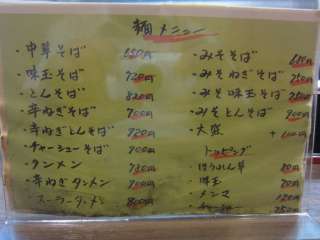 麺メニュー
・中華そば 650円
・味玉そば 720円
・とんそば 820円
・辛ねぎそば 700円
・辛ねぎとんそば 920円
・チャーシューそば 900円
・タンメン 750円
・辛ねぎタンメン 900円
スーラータンメン 800円
・みそそば
・みそねぎそば 750円
・みそ味玉そば
・みそとんそば 900円
・大盛 + 100円
トッピング
ほうれん草 80円
味玉 70円
メンマ 150円
チャーシュー 250円